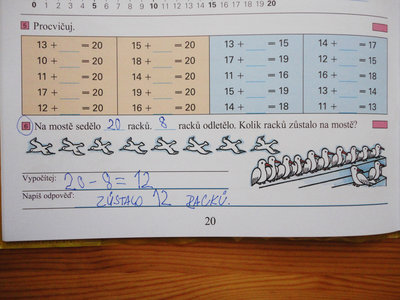 0 1 2 3 4 5 6 7 8 9 10 11 12 13 14 15 16 17 18 19 20
5 Procvičuj.
13 + __ = 20 15 + __ = 20 13 + __ = 15 14 + __ = 17
10 + __ = 20 18 + __ = 20 17 + __ = 19 12 + __ = 16
11 + __ = 20 14 + __ = 20 11 + __ = 16 16 + __ = 18
17 + __ = 20 19 + __ = 20 15 + __ = 16 11 + __ = 14
12 + __ = 20 16 + __ = 20 14 + __ = 18 11 + __ = 13
6 Na mostě sedělo 20 racků. 8 racků odletělo. Kolik racků zůstalo na mostě?
Vypočítej: 20 - 8 = 12
Napiš odpověď: ZŮSTALO 12 RACKŮ.
20